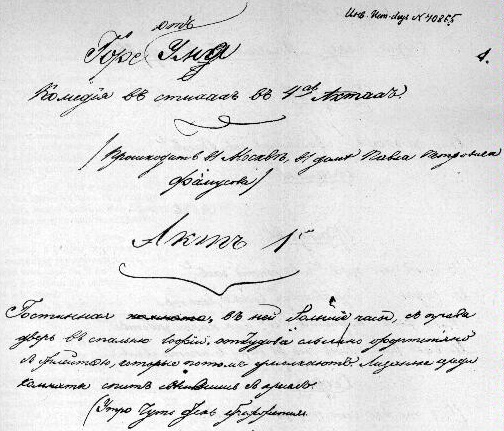 № 70855
1.
отъ
Горе Ума
Комедія въ стихахъ въ 4хъ Актахъ.
/Происходитъ въ Москвѣ, въ домѣ Павла Петровича
Фамусова/
Актъ 1й
Гостинная комната, въ ней большіе часы, съ права
дверь въ спальню Софіи, откудова слышно фортопіяно
съ флейтою, которые потомъ умолкаютъ. Лизанька среди
комнаты спитъ свѣсившись съ креселъ.
(Утро чуть день брежжится